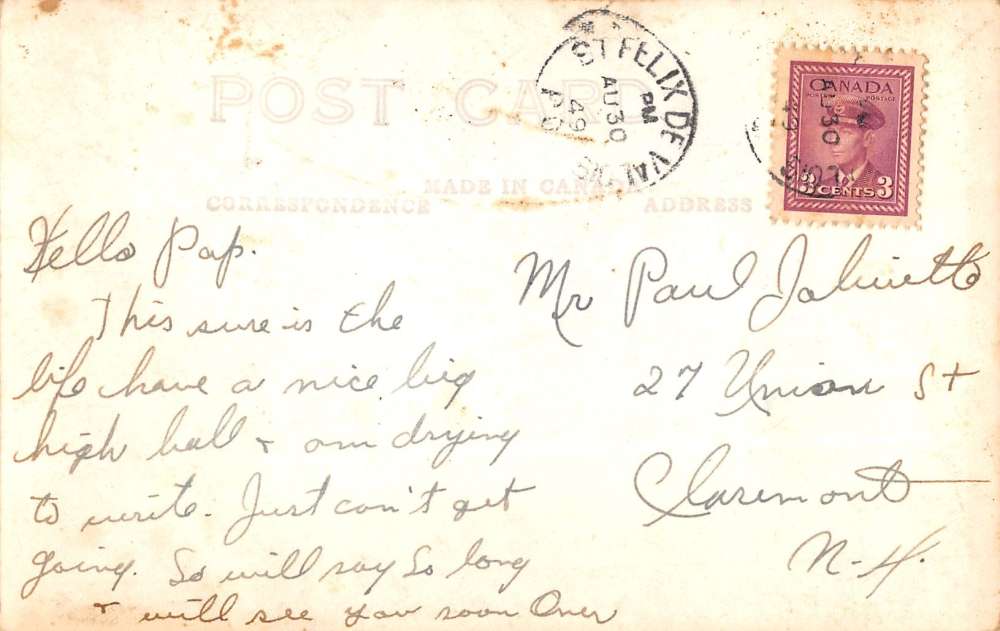 POST CARD
MADE IN CANADA
CORRESPONDENCE
ADDRESS
ST FELIX DE VAL
PM
AU 30
49
P Q
CANADA
POSTES POSTAGE
3 CENTS 3
AU 30
Hello Pap.
This sure is the
life have a nice big
high ball & am drying
to write. Just can't get
going. So will say So long
& will see you soon Over
Mr Paul
27 Union St
Claremont
N-H.